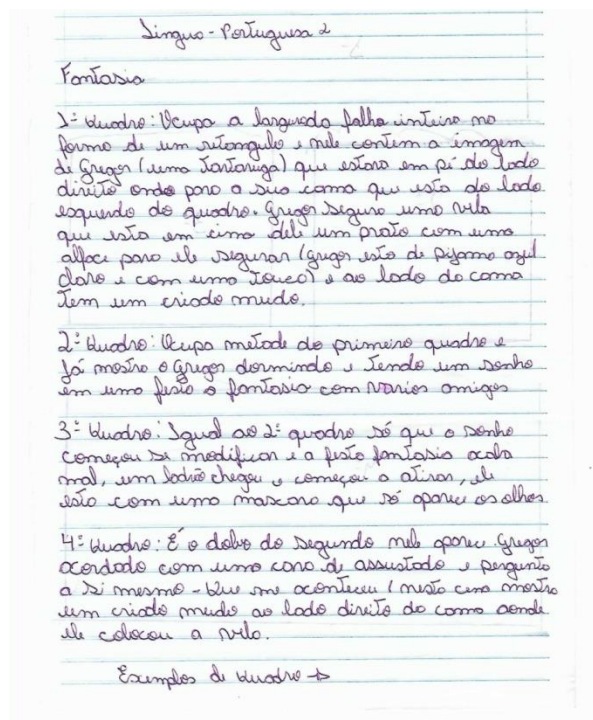 Lingua - Portuguesa 2
Fantasia
1º Quadro: Ocupa a largura da folha inteira na
forma de um retangulo e nele contem a imagem
de Gregor (uma Tartaruga) que estara em pé do lado
direito onde para a sua cama que esta do lado
esquerdo do quadro. Gregor segura uma vela
que esta em cima dele um prato com uma
alface para ele segurar (Gregor esta de pijama azul
claro e com uma Touca) e ao lado da cama
Tem um criado mudo.
2º Quadro: Ocupa metade do primeiro quadro e
já mostra o Gregor dormindo e Tendo um sonho
em uma festa a fantasia com varios amigos
3º Quadro: Igual ao 2º quadro só que o sonho
começou se modificar e a festa fantasia acaba
mal, um ladrão chegou e começou a atirar, ele
esta com uma mascara que só aparece os olhos.
4º Quadro: É o dobro do segundo nele aparece Gregor
acordado com uma cara de assustado e pergunta
a si mesmo - Que me aconteceu (nesta cena mostra
um criado mudo ao lado direito da cama aonde
ele colocou a vela.
Exemplos de Quadro →